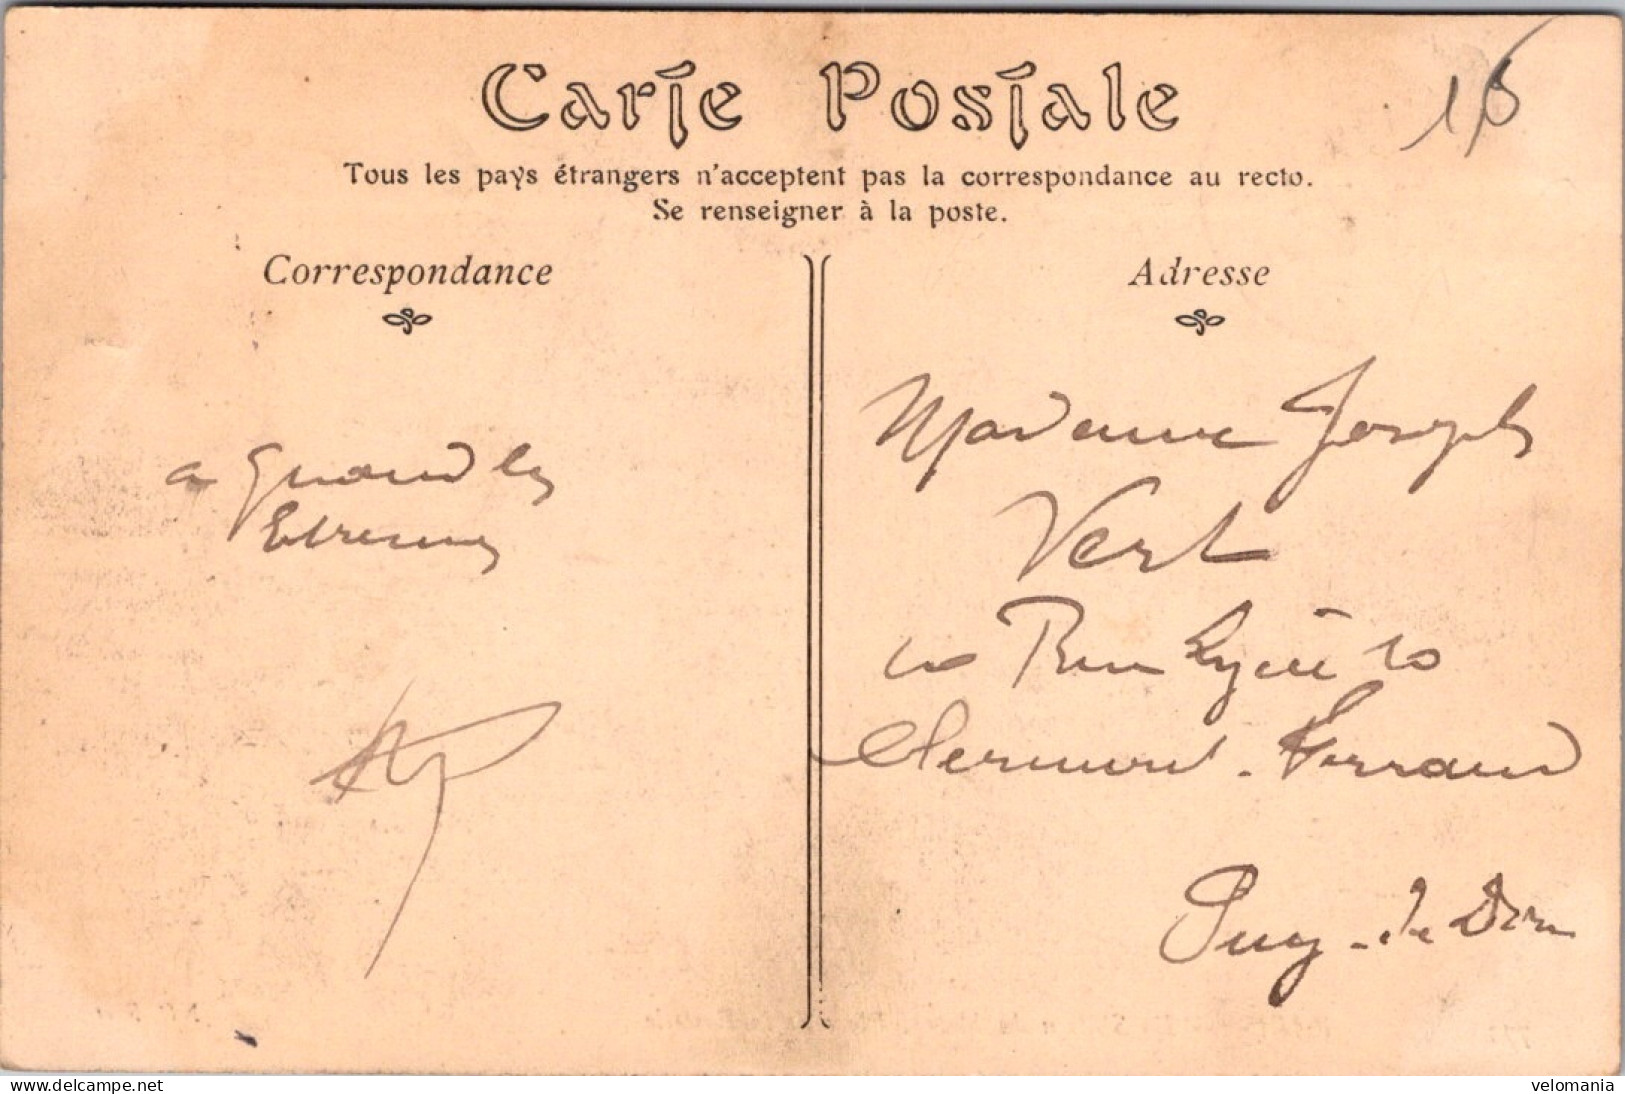 Carte Postale
Tous les pays étrangers n'acceptent pas la correspondance au recto.
Se renseigner à la poste.
Correspondance
Adresse
a quand les
Etrennes
Madame Joseph
Vert
Rue
Clermont-Ferrand
Puy-de Dôme
velomania
Delcampe.net